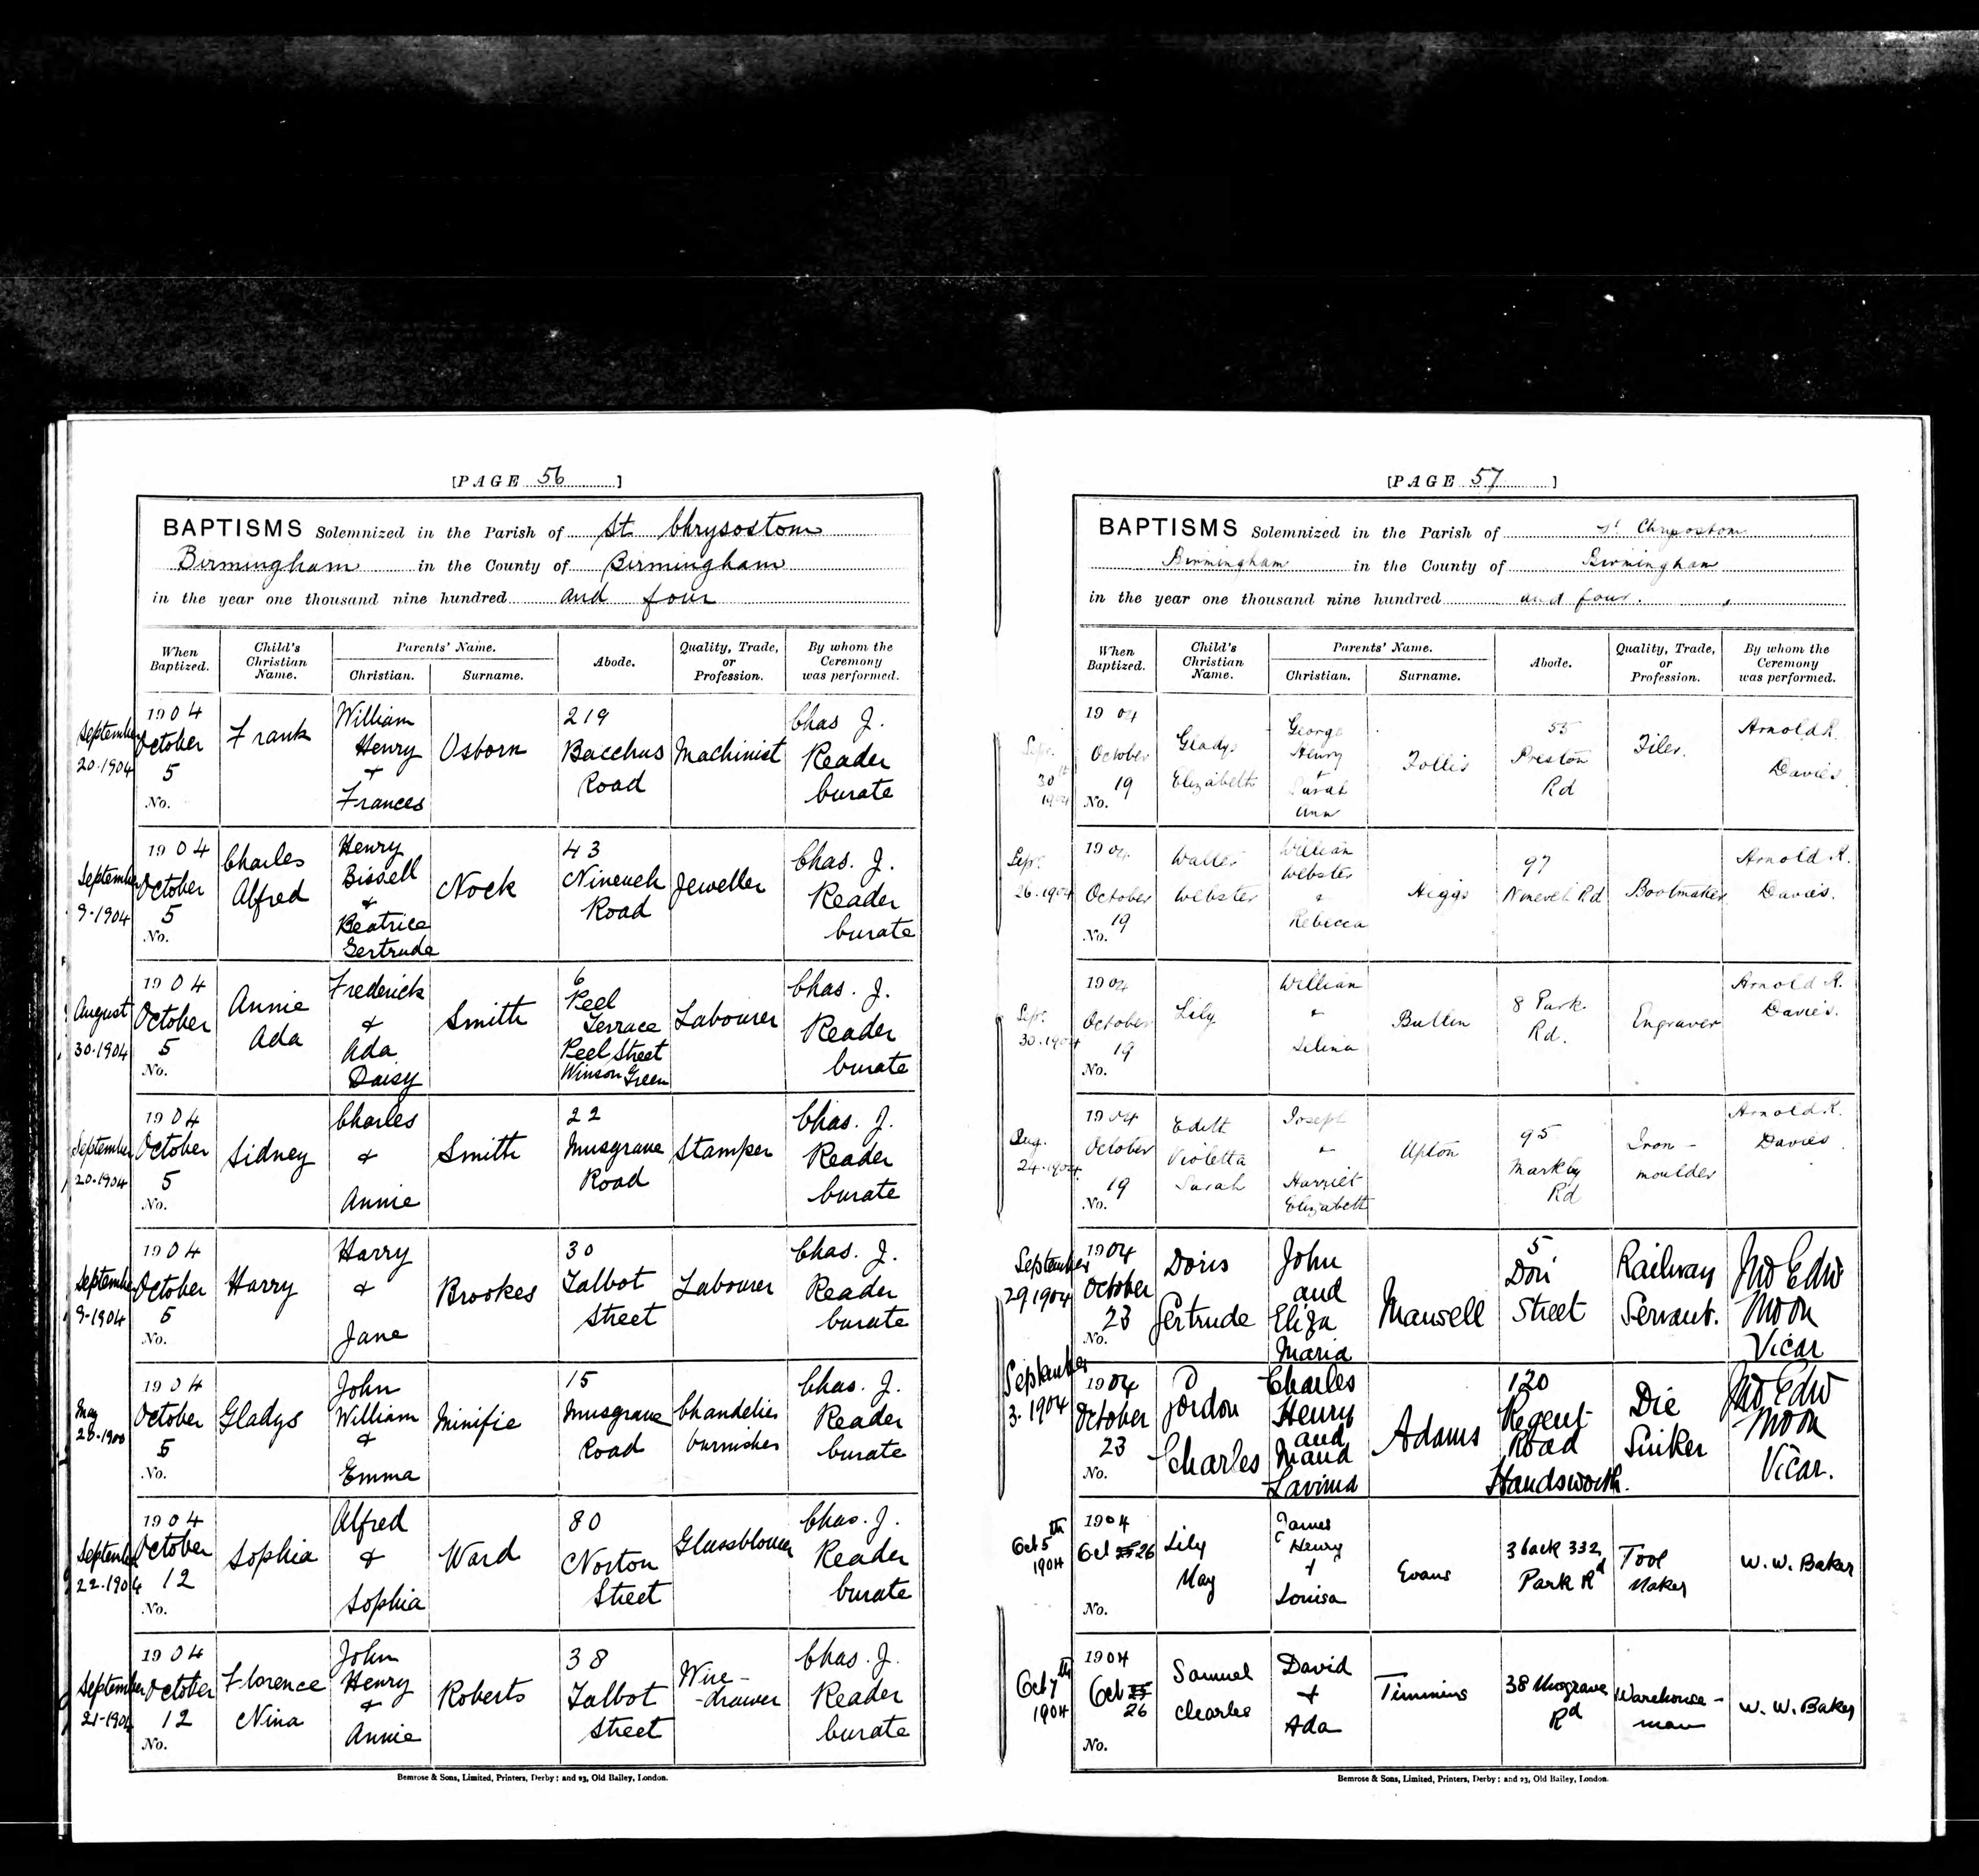 [PAGE 56]
BAPTISMS Solemnized in the Parish of St Chrysostom
Birmingham in the County of Birmingham
in the year one thousand nine hundred and four
When Baptized. Child's Christian Name. Parents' Name. Christian. Surname. Abode. Quality, Trade, or Profession. By whom the Ceremony was performed.
September 20.1904 1904 October 5 No. Frank William Henry + Frances Osborn 219 Bacchus Road Machinist Chas J. Reader Curate
September 9-1904 1904 October 5 No. Charles Alfred Henry Bissell + Beatrice Gertrude Nock 43 Nineveh Road Jeweller Chas. J. Reader Curate
August 30.1904 1904 October 5 No. Annie Ada Frederick + Ada Daisy Smith 6 Peel Terrace Peel Street Winson Green Labourer Chas. J. Reader Curate
September 20.1904 1904 October 5 No. Sidney Charles + Annie Smith 22 Musgrave Road Stamper Chas. J. Reader Curate
September 9-1904 1904 October 5 No. Harry Harry + Jane Brookes 30 Talbot Street Labourer Chas. J. Reader Curate
May 1904 October 5 No. Gladys John William + Emma Minifie 15 Musgrave Road Chandelier burnisher Chas. J. Reader Curate
September 22.1904 1904 October 12 No. Sophia Alfred + Sophia Ward 80 Norton Street Glassblower Chas. J. Reader Curate
September 21-1904 1904 October 12 No. Florence Nina John Henry + Annie Roberts 38 Talbot Street Wire-drawer Chas. J. Reader Curate
Bemrose & Sons, Limited, Printers, Derby; and 23, Old Bailey, London.
[PAGE 57]
BAPTISMS Solemnized in the Parish of St Chrysostom
Birmingham in the County of Birmingham
in the year one thousand nine hundred and four.
When Baptized. Child's Christian Name. Parents' Name. Christian. Surname. Abode. Quality, Trade, or Profession. By whom the Ceremony was performed.
Sept. 30th 1904 1904 October 19 No. Gladys Elizabeth George Henry + Sarah Ann 55 Preston Rd Arnold R. Davies
Sept. 26.1904 1904 October 19 No. Walter Webster William Webster + Rebecca Higgs 97 Nineveh Rd Bootmaker Arnold R. Davies.
Sept. 30.1904 1904 October 19 No. Lily William + Selina Bullen 8 Park Rd. Engraver Arnold R. Davies.
Aug. 24.1904 1904 October 19 No. Edith Violetta Sarah Joseph + Harriet Elizabeth Upton 95 Markby Rd Iron-moulder Arnold R. Davies
September 29 1904 1904 October 23 No. Doris Gertrude John and Eliza Maria Mansell 5 Don Street Railway Servant. Jno Edw Moon Vicar
September 3.1904 1904 October 23 No. Gordon Charles Charles Henry and Maud Lavinia Adams 120 Regent Road Handsworth. Die Sinker Jno Edw Moon Vicar.
Oct 5th 1904 1904 Oct 26 No. Lily May James Henry + Louisa Evans 3 back 332 Park Rd Tool Maker W. W. Baker
Oct 7th 1904 1904 Oct 25 26 No. Samuel Charles David + Ada Timmins 38 Musgrave Rd Warehouse-man W. W. Baker
Bemrose & Sons, Limited, Printers, Derby; and 23, Old Bailey, London.